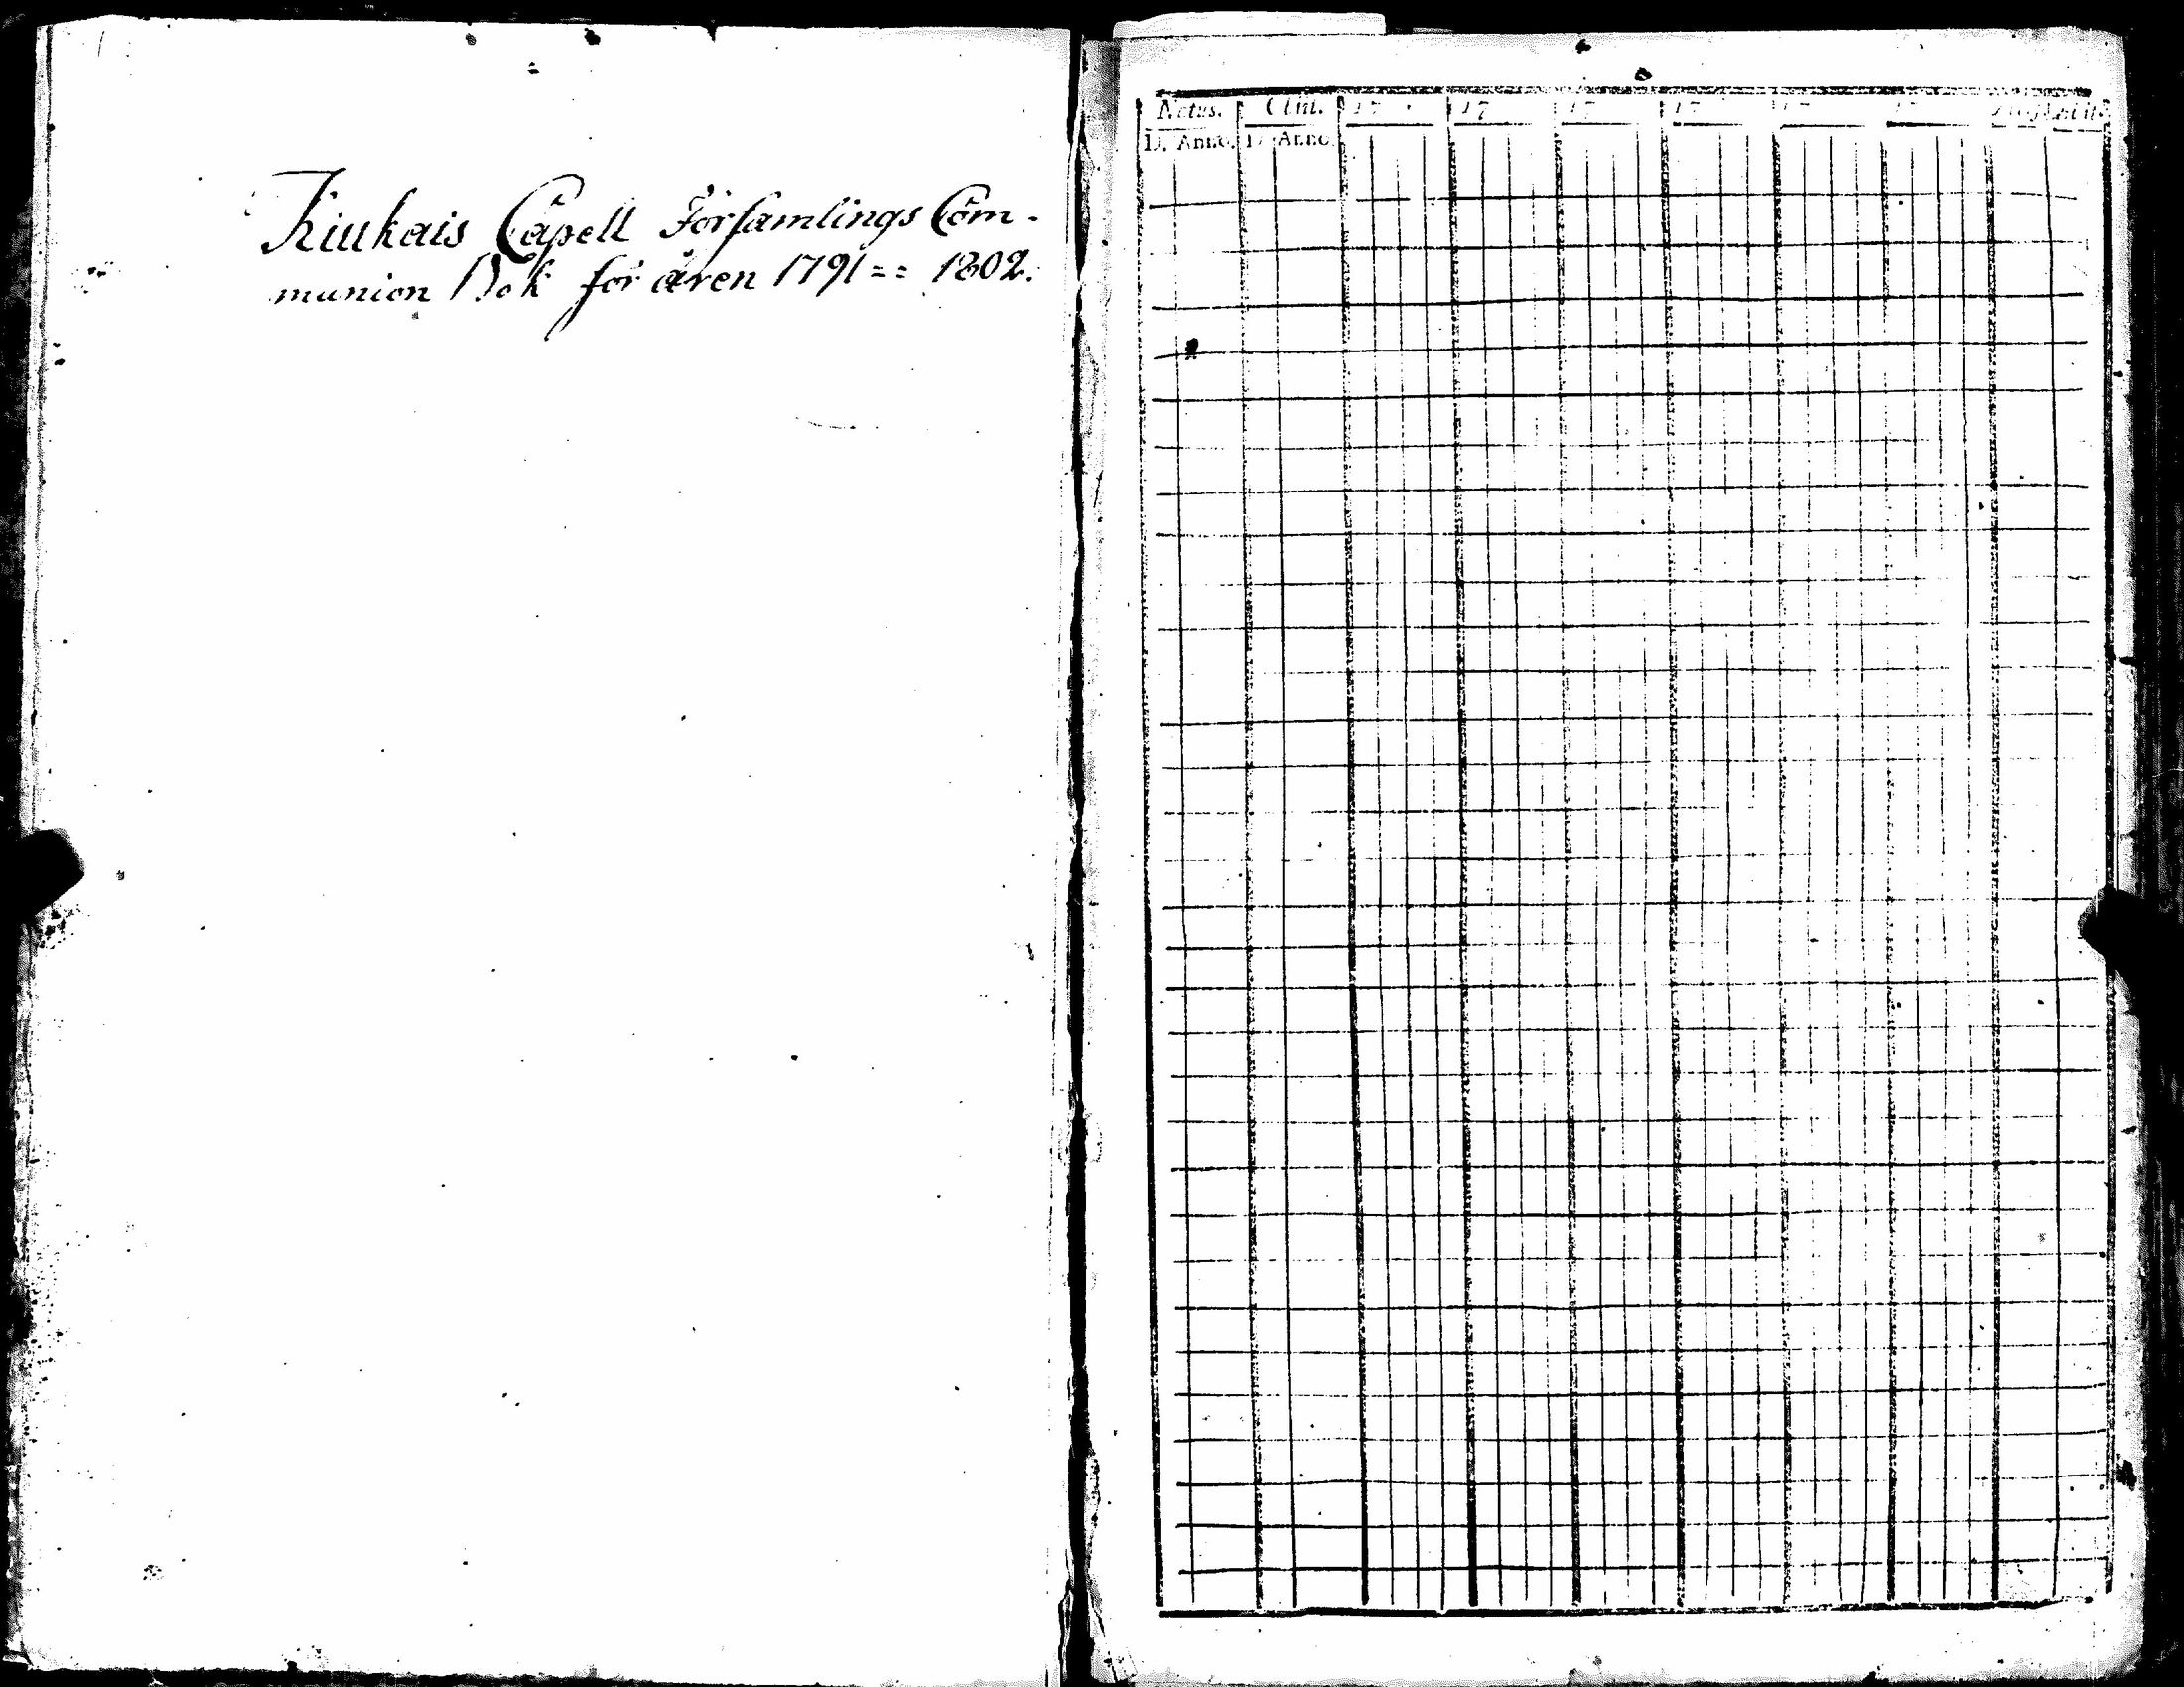 Kiukais Capell Församlings Com-
munion Bok för åren 1791 == 1802.
Natus. 17 17 17 17 17
D. Anno. D. Anno.